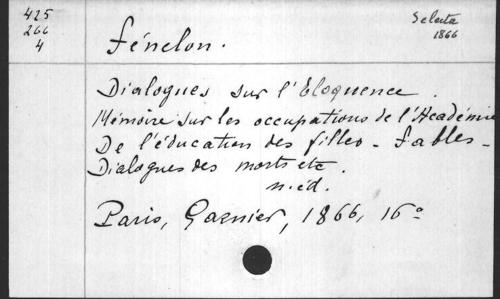 425
266
4
Fénelon.
Selecta
1866
Dialogues sur l'Eloquence.
Mémoire sur les occupations de l'Académie
De l'éducation des filles - Fables -
Dialogues des morts etc.
n. éd.
Paris, Garnier, 1866, 16°